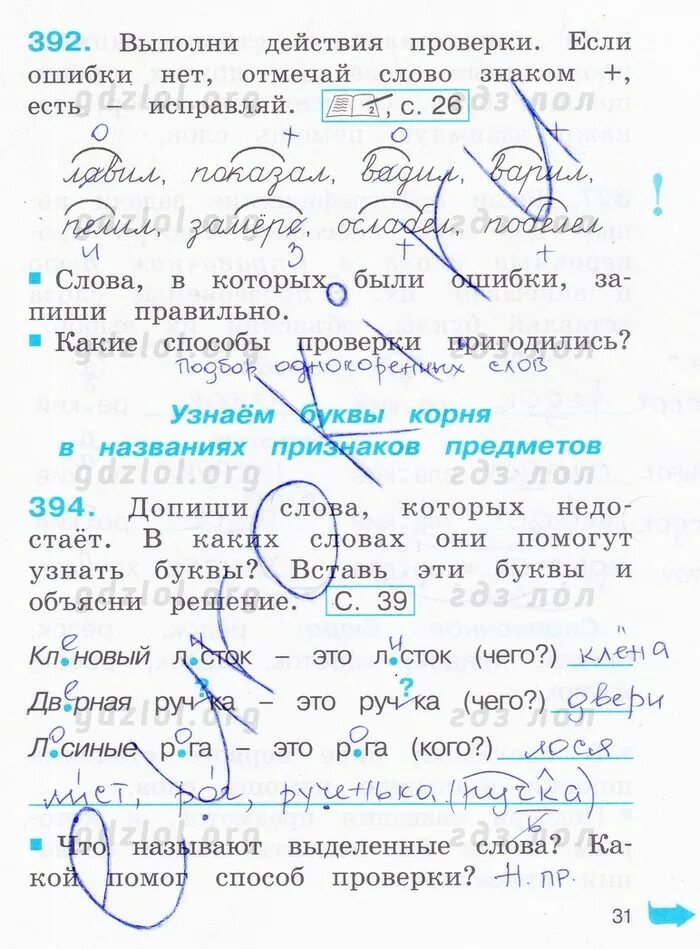 392. Выполни действия проверки. Если
ошибки нет, отмечай слово знаком +,
есть – исправляй. , с. 26
о + о +
лавил, показал, вадил, варил,
пелил, замёрс, ослабел, побелел
и з + +
Слова, в которых были ошибки, за-
пиши правильно.
Какие способы проверки пригодились?
Подбор однокоренных слов
Узнаём буквы корня
в названиях признаков предметов
gdzlol.org гдз лол
394. Допиши слова, которых недо-
стаёт. В каких словах они помогут
узнать буквы? Вставь эти буквы и
объясни решение. С. 39
Кленовый листок – это листок (чего?) клёна
Дверная руч?ка – это руч?ка (чего?) двери
Лосиные рога – это рога (кого?) лося
лист, рог, рученька (ручка)
Что называют выделенные слова? Ка-
кой помог способ проверки? Н. пр.
31